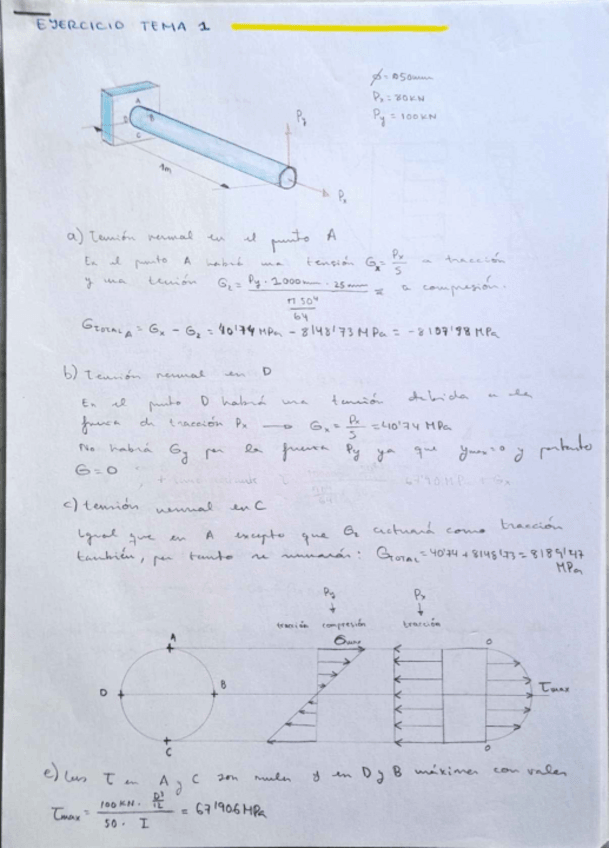 EJERCICIO TEMA 1
Px = 80KN
Py = 100KN
A
B
C
D
1m
Py
Px
a) Tensión normal en el punto A
En el punto A habrá una tensión Gx = Px/S a tracción
y una tensión G2 = Py · 1000mm · 25mm / (π 50⁴/64) = a compresión.
GTOTAL A = Gx - G2 = 40'74 MPa - 8148'73 MPa = -8107'98 MPa
b) Tensión normal en D
En el punto D habrá una tensión debida a la
fuerza de tracción Px → Gx = Px/S = 40'74 MPa
No habrá Gy por la fuerza Py ya que ymax = 0 y por tanto
G = 0
c) tensión normal en C
Igual que en A excepto que G2 actuará como tracción
también, por tanto se sumarán: GTOTAL = 40'74 + 8148'73 = 8189'47
MPa
Py Px
tracción compresión tracción
A σmax 0
D B τmax
C 0
e) Las τ en A y C son nulas y en D y B máximas con valor
τmax = 100 KN · D³/12 / 50 · I = 67'906 MPa